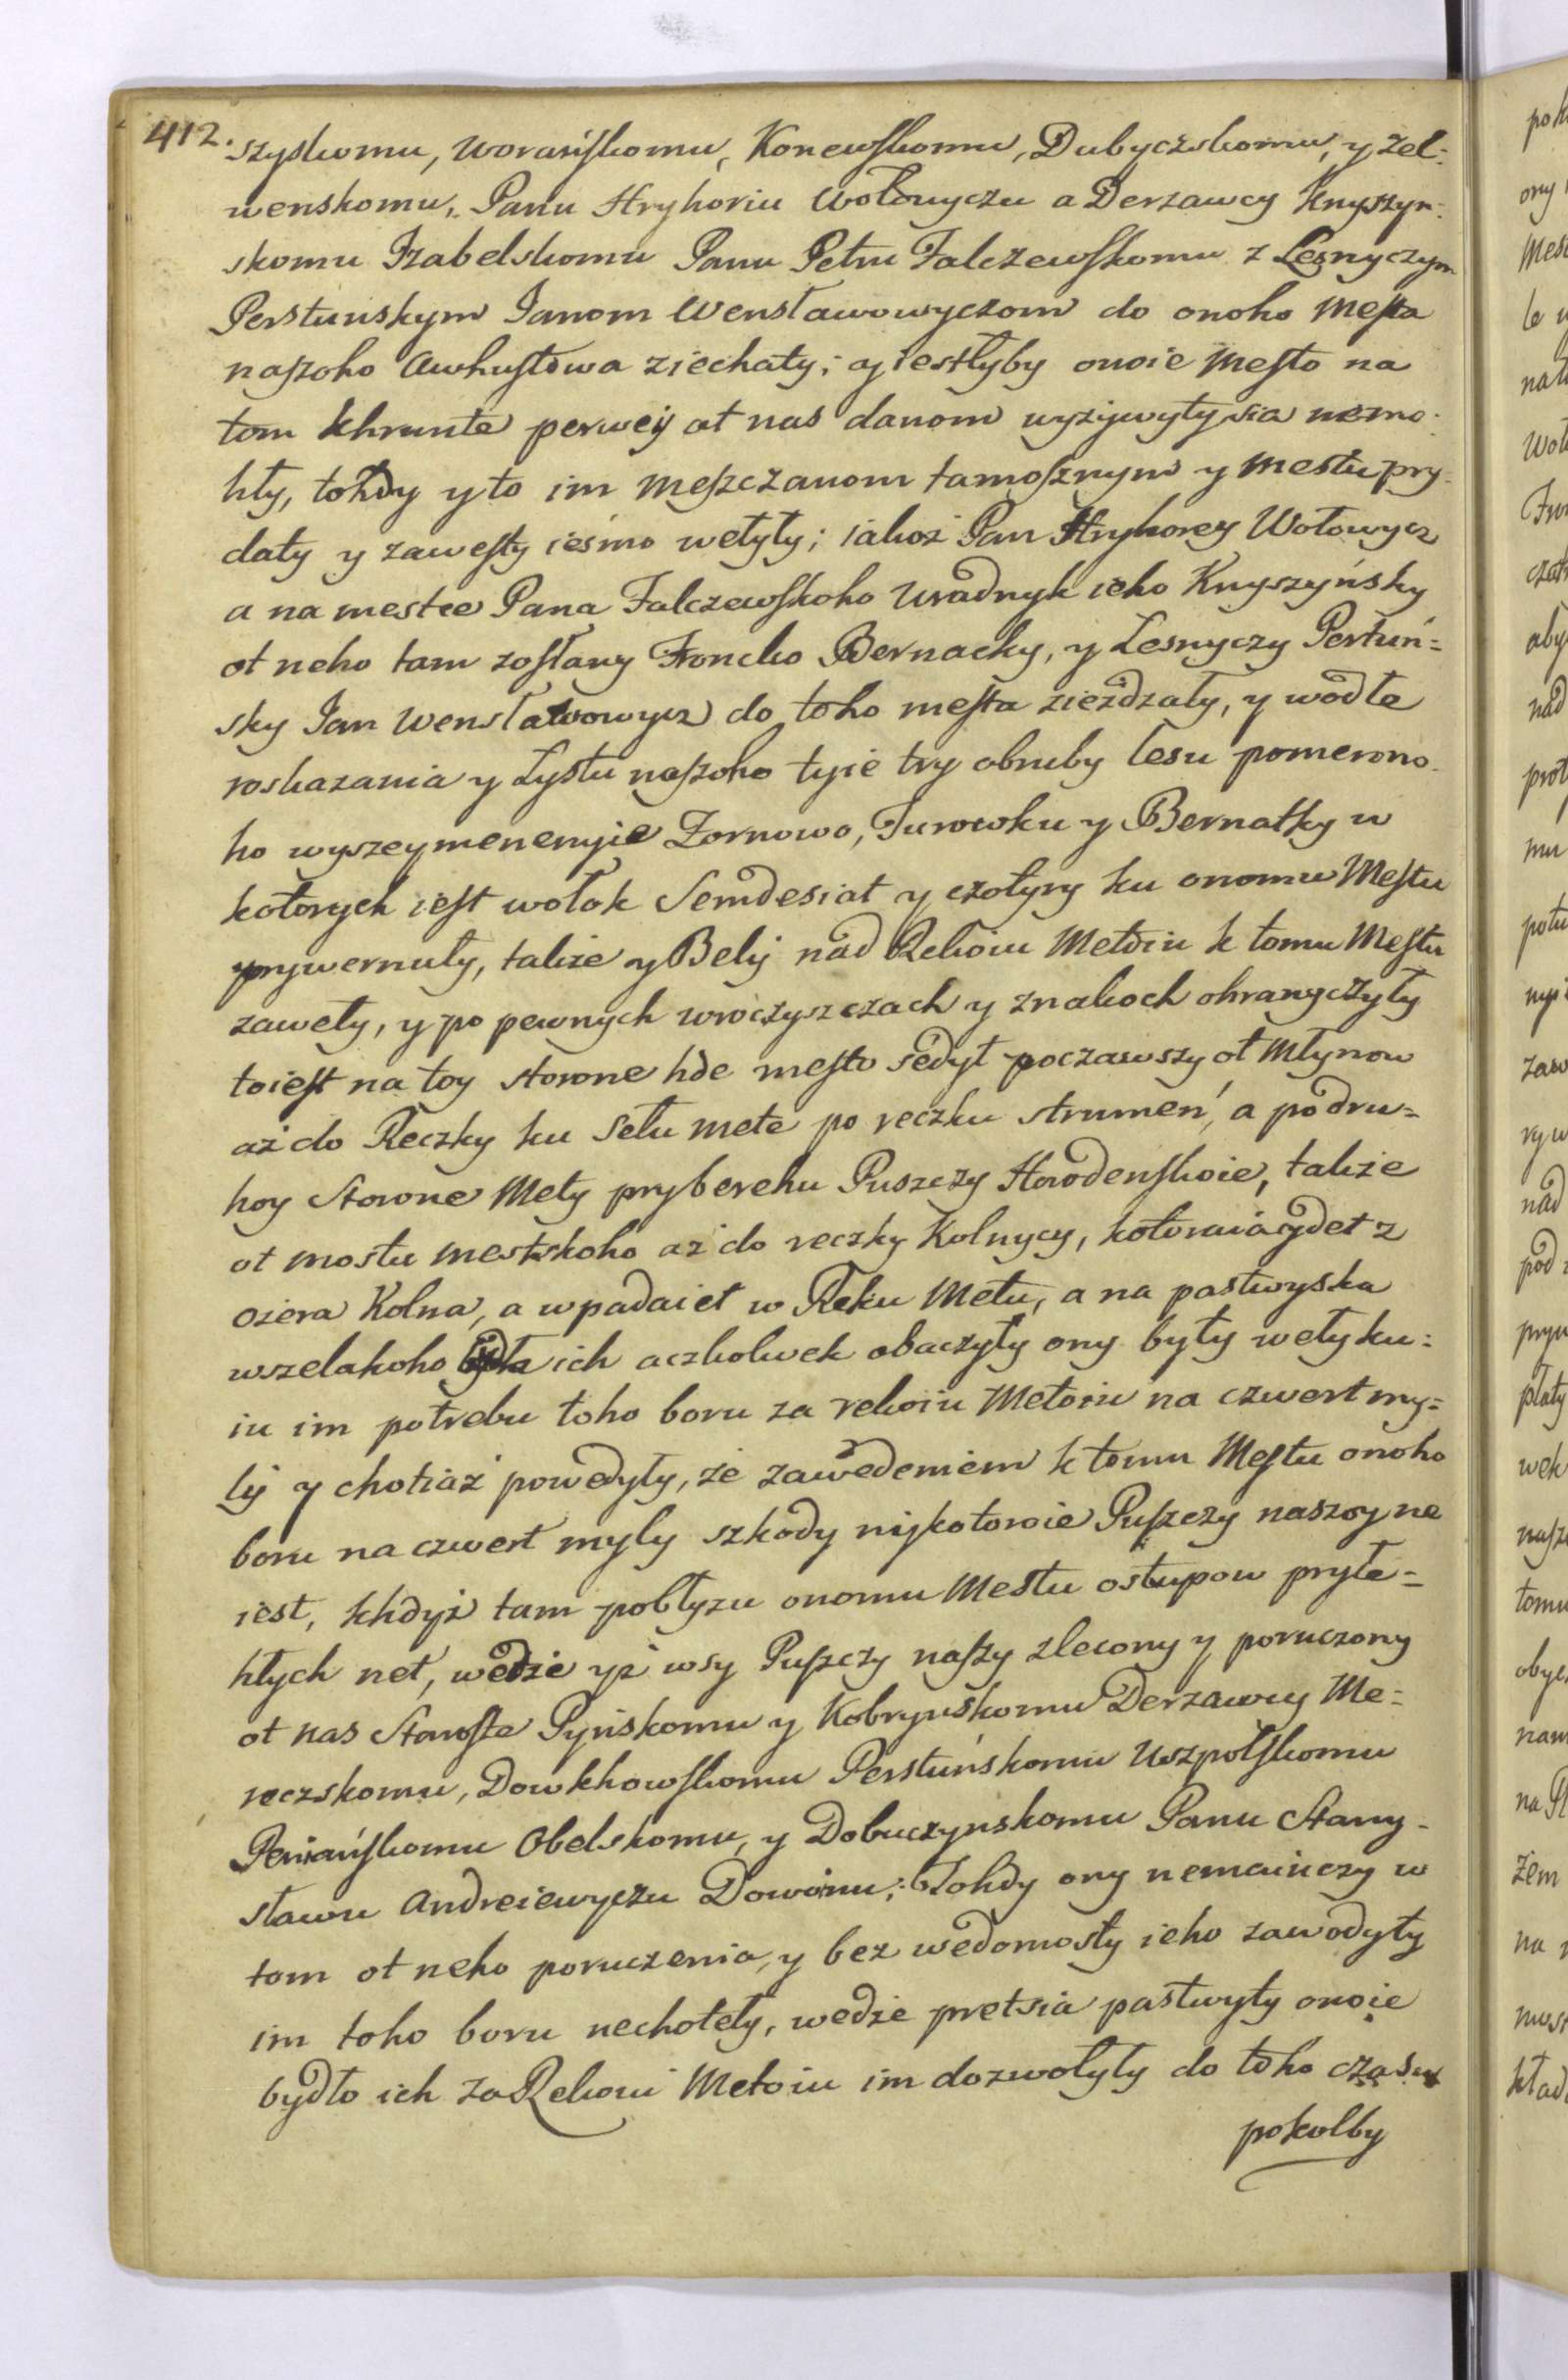 412. szyskomu, woranſkomu, Konewſkomu, Dubyczskomu, y Zel:
wenskomu, Panu Hryhoriu Wołowyczu a Derzawcy Knyszyn:
skomu Izabelskomu Panu Petru Falczewſkomu z Lesnyczym
Perstunskym Janom Wensławowyczom do onoho Meſta
naſzoho Awhuſtowa ziechały; y iestłyby onoie Meſto na
tom khrunte perweij ot nas danom wyzijwyty sia nemo:
hły, tohdy y to im Meſzczanom tamoſznym y Mestu pry:
dały y zaweſty ieśmo wełyły; iakoż Pan Hryhorey Wołowycz
a na mestce Pana Falczewſkoho Uradnyk ieho Knyszyńsky
ot neho tam zoſłany Froncko Bernacky, y Lesnyczy Perſtuń=
sky Jan Wensławowycz do toho meſta zieżdzały, y wodłe
roskazania y Lystu naſzoho tyie try obruby lesu pomerono
ho wyszeymenenyie Zornowo, Turowku y Bernatky w
kotorych ieſt wołok Semdesiat y czotyry ku onomu Meſtu
prywernuły, także y Belij nad Rekoiu Metoiu k tomu Meſtu
zaweły, y po pewnych wroczyszczach y znakoch ohranyczyły
toieſt na toy storone hde meſto sedyt poczawszy ot Młynow
aż do Reczky ku Sełu Mete po reczku strumeń, a po dru=
hoy Storone Mety pry berehu Puszczy Horodenſkoie, także
ot mostu mestskoho aż do reczky Kolnycy, kotoraia ydet z
oziera Kolna, a wpadaiet w Reku Metu, a na pastwyska
wszelakoho bydła ich aczkolwek obaczyły ony były wełyku:
iu im potrebu toho boru za rekoiu Metoiu na czwert my=
lij y chotiaż powedyły, że zawedeniem k tomu Meſtu onoho
boru na czwert myly szkody nijkotoroie Puſzczy naszoy ne
iest, khdyż tam poblyzu onomu Mestu ostupow pryłe=
hłych net, wedże yż wsy Puſzczy naſzy zlecony y poruczony
ot nas Staroſte Pyńskomu y Kobryńskomu Derzawcy Me=
reczskomu, Dowkhowſkomu Perstuńskomu Uszpołſkomu
Peniańſkomu Obelskomu, y Dobuczynskomu Panu Stany-
sławu Andreiewyczu Dowoinu; Tohdy ony nemaiuczy w
tom ot neho poruczenia, y bez wedomosty ieho zawodyty
im toho boru nechoteły, wedże pretsia pastwyty onoie
bydło ich za Rekoiu Metoiu im dozwołyły do toho czasu
pokolby